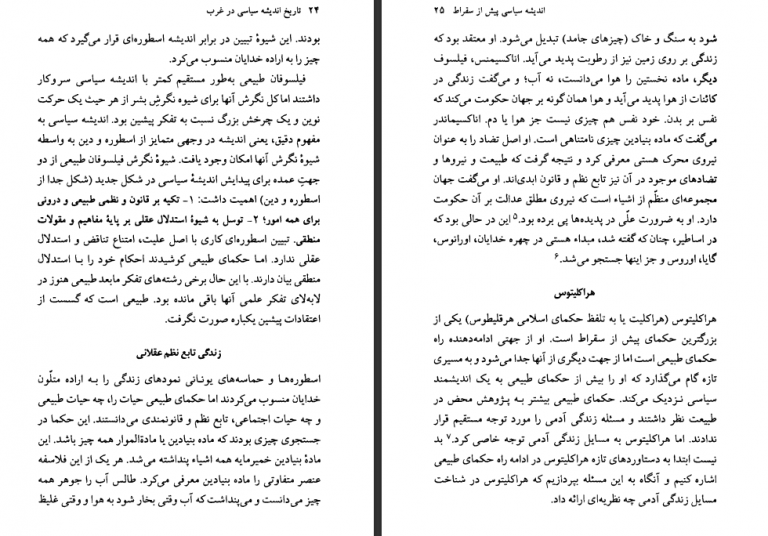 ۲۴ تاریخ اندیشه سیاسی در غرب
بودند. این شیوهٔ تبیین در برابر اندیشه اسطوره‌ای قرار می‌گیرد که همه
چیز را به اراده خدایان منسوب می‌کرد.
فیلسوفان طبیعی به‌طور مستقیم کمتر با اندیشه سیاسی سروکار
داشتند اما کل نگرش آنها برای شیوه نگرش بشر از هر حیث یک حرکت
نوین و یک چرخش بزرگ نسبت به تفکر پیشین بود. اندیشه سیاسی به
مفهوم دقیق، یعنی اندیشه در وجهی متمایز از اسطوره و دین به واسطه
شیوهٔ نگرش آنها امکان وجود یافت. شیوهٔ نگرش فیلسوفان طبیعی از دو
جهتِ عمده برای پیدایش اندیشهٔ سیاسی در شکل جدید (شکل جدا از
اسطوره و دین) اهمیت داشت: ۱- تکیه بر قانون و نظمی طبیعی و درونی
برای همه امور؛ ۲- توسل به شیوهٔ استدلال عقلی بر پایهٔ مفاهیم و مقولات
منطقی. تبیین اسطوره‌ای کاری با اصل علیت، امتناع تناقض و استدلال
عقلی ندارد. اما حکمای طبیعی کوشیدند احکام خود را با استدلال
منطقی بیان دارند. با این حال برخی رشته‌های تفکر مابعد طبیعی هنوز در
لابه‌لای تفکر علمی آنها باقی مانده بود. طبیعی است که گسست از
اعتقادات پیشین یکباره صورت نگرفت.
زندگی تابع نظم عقلانی
اسطوره‌ها و حماسه‌های یونانی نمودهای زندگی را به اراده متلّون
خدایان منسوب می‌کردند اما حکمای طبیعی حیات را، چه حیات طبیعی
و چه حیات اجتماعی، تابع نظم و قانونمندی می‌دانستند. این حکما در
جستجوی چیزی بودند که ماده بنیادین یا مادةالموار همه چیز باشد. این
مادهٔ بنیادین خمیرمایه همه اشیاء پنداشته می‌شد. هر یک از این فلاسفه
عنصر متفاوتی را ماده بنیادین معرفی می‌کرد. طالس آب را جوهر همه
چیز می‌دانست و می‌پنداشت که آب وقتی بخار شود به هوا و وقتی غلیظ
اندیشه سیاسی پیش از سقراط ۲۵
شود به سنگ و خاک (چیزهای جامد) تبدیل می‌شود. او معتقد بود که
زندگی بر روی زمین نیز از رطوبت پدید می‌آید. اناکسیمنس، فیلسوف
دیگر، ماده نخستین را هوا می‌دانست، نه آب؛ و می‌گفت زندگی در
کائنات از هوا پدید می‌آید و هوا همان گونه بر جهان حکومت می‌کند که
نفس بر بدن. خود نفس هم چیزی نیست جز هوا یا دم. اناکسیماندر
می‌گفت که ماده بنیادین چیزی نامتناهی است. او اصل تضاد را به عنوان
نیروی محرک هستی معرفی کرد و نتیجه گرفت که طبیعت و نیروها و
تضادهای موجود در آن نیز تابع نظم و قانون ابدی‌اند. او می‌گفت جهان
مجموعه‌ای منظّم از اشیاء است که نیروی مطلق عدالت بر آن حکومت
دارد. او به ضرورت علّی در پدیده‌ها پی برده بود.۵ این در حالی بود که
در اساطیر، چنان که گفته شد، مبداء هستی در چهره خدایان، اورانوس،
گایا، اوروس و جز اینها جستجو می‌شد.۶
هراکلیتوس
هراکلیتوس (هراکلیت یا به تلفظ حکمای اسلامی هرقلیطوس) یکی از
بزرگترین حکمای پیش از سقراط است. او از جهتی ادامه‌دهنده راه
حکمای طبیعی است اما از جهت دیگری از آنها جدا می‌شود و به مسیری
تازه گام می‌گذارد که او را بیش از حکمای طبیعی به یک اندیشمند
سیاسی نزدیک می‌کند. حکمای طبیعی بیشتر به پژوهش محض در
طبیعت نظر داشتند و مسئله زندگی آدمی را مورد توجه مستقیم قرار
ندادند. اما هراکلیتوس به مسایل زندگی آدمی توجه خاصی کرد.۷ بد
نیست ابتدا به دستاوردهای تازه هراکلیتوس در ادامه راه حکمای طبیعی
اشاره کنیم و آنگاه به این مسئله بپردازیم که هراکلیتوس در شناخت
مسایل زندگی آدمی چه نظریه‌ای ارائه داد.